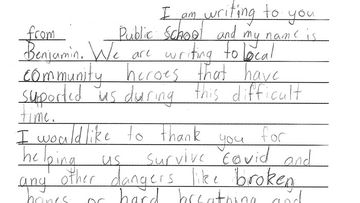 I am writing to you
from Public School and my name is
Benjamin. We are writing to local
community heroes that have
suported us during this difficult
time.
I would like to thank you for
helping us survive Covid and
any other dangers like broken
bones or hard breathing and